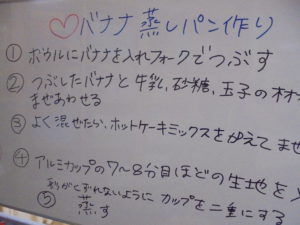 ♡バナナ蒸しパン作り
① ボウルにバナナを入れフォークでつぶす
② つぶしたバナナと牛乳、砂糖、玉子の材
まぜあわせる
③ よく混ぜたら、ホットケーキミックスをかえてませ
④ アルミカップの7〜8分目ほどの生地を
形がくずれないようにカップを二重にする
⑤ 蒸す